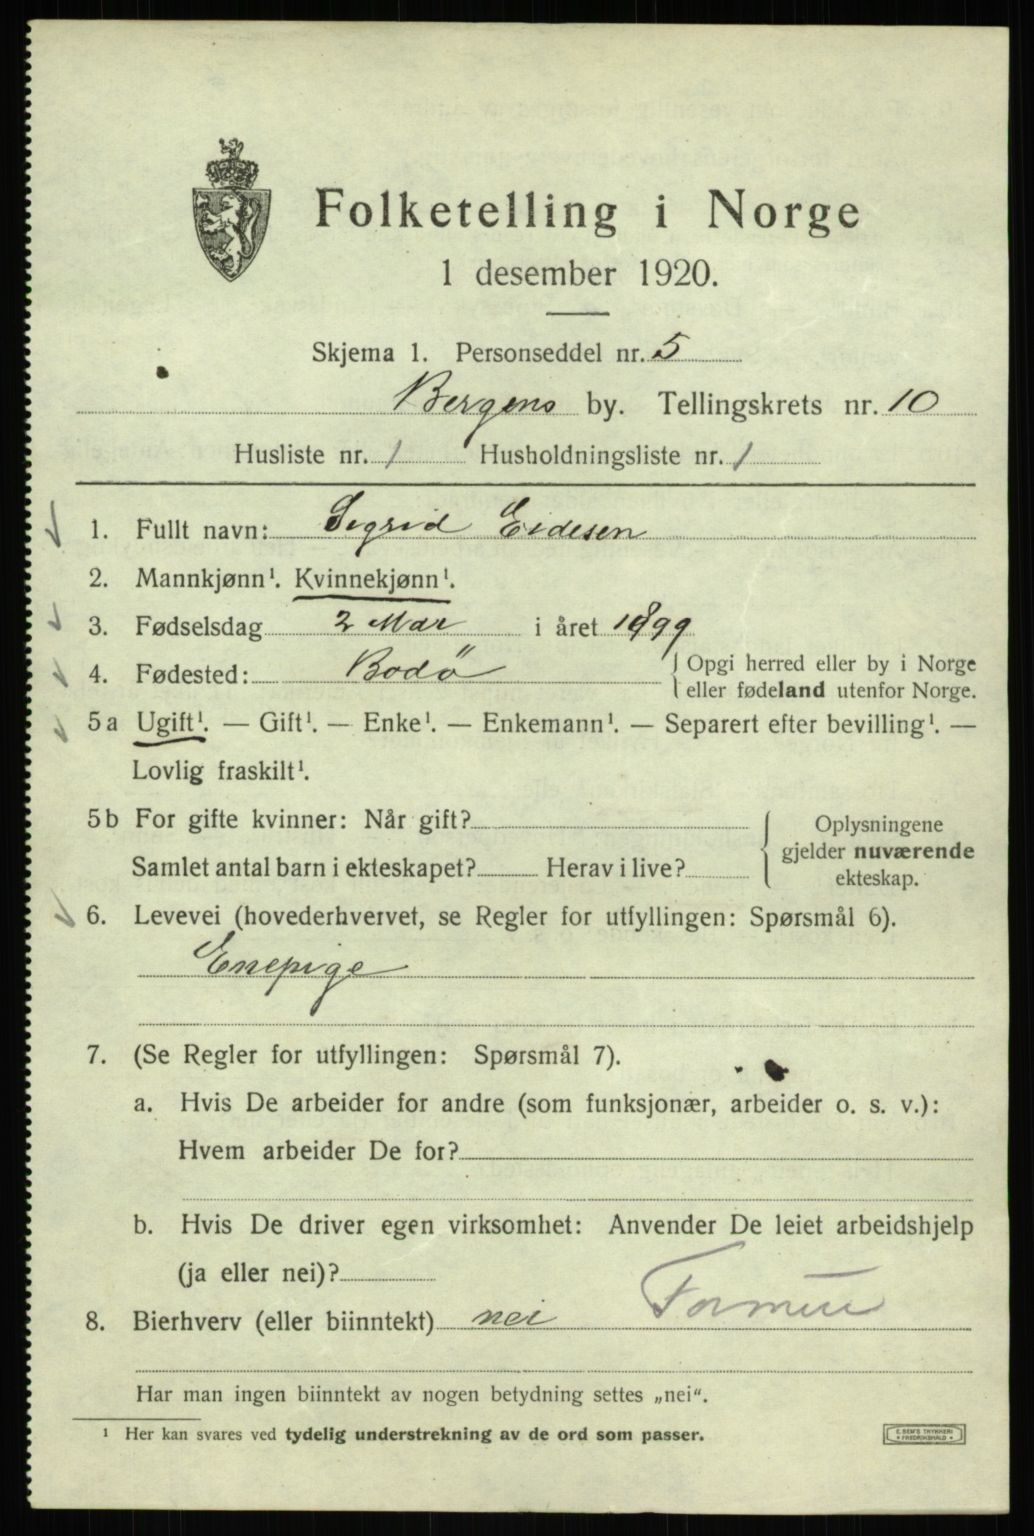 Folketelling i Norge
1 desember 1920.
Skjema 1. Personseddel nr. 5
Bergens by. Tellingskrets nr. 10
Husliste nr. 1 Husholdningsliste nr. 1
1. Fullt navn: Sigrid Eidesen
2. Mannkjønn¹. Kvinnekjønn¹.
3. Fødselsdag 2 Mar i året 1899
4. Fødested: Bodö { Opgi herred eller by i Norge
eller fødeland utenfor Norge.
5a Ugift¹. — Gift¹. — Enke¹. — Enkemann¹. — Separert efter bevilling¹. —
Lovlig fraskilt¹.
5b For gifte kvinner: Når gift?
Samlet antal barn i ekteskapet? Herav i live?
{ Oplysningene
gjelder nuværende
ekteskap.
6. Levevei (hovederhvervet, se Regler for utfyllingen: Spørsmål 6).
Enepige
7. (Se Regler for utfyllingen: Spørsmål 7).
a. Hvis De arbeider for andre (som funksjonær, arbeider o. s. v.):
Hvem arbeider De for?
b. Hvis De driver egen virksomhet: Anvender De leiet arbeidshjelp
(ja eller nei)?
8. Bierhverv (eller biinntekt) nei
Har man ingen biinntekt av nogen betydning settes „nei“.
¹ Her kan svares ved tydelig understrekning av de ord som passer.
E. SEM'S TRYKKERI
FREDRIKSHALD